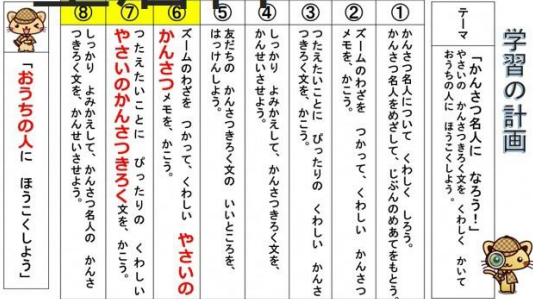 学習の計画
テーマ
「かんさつ名人に なろう！」
やさいの かんさつきろく文を くわしく かいて
おうちの人に ほうこくしよう。
①
かんさつ名人について くわしく しろう。
かんさつ名人をめざして、じぶんのめあてをもとう。
②
ズームのわざを つかって、くわしい かんさつ
メモを、かこう。
③
つたえたいことに ぴったりの くわしい かんさ
つきろく文を、かこう。
④
しっかり よみかえして、かんさつきろく文を、
かんせいさせよう。
⑤
友だちの かんさつきろく文の いいところを、
はっけんしよう。
⑥
ズームのわざを つかって、くわしい やさいの
かんさつメモを、かこう。
⑦
つたえたいことに ぴったりの くわしい
やさいのかんさつきろく文を、かこう。
⑧
しっかり よみかえして、かんさつ名人の かんさ
つきろく文を、かんせいさせよう。
「おうちの人に ほうこくしよう」